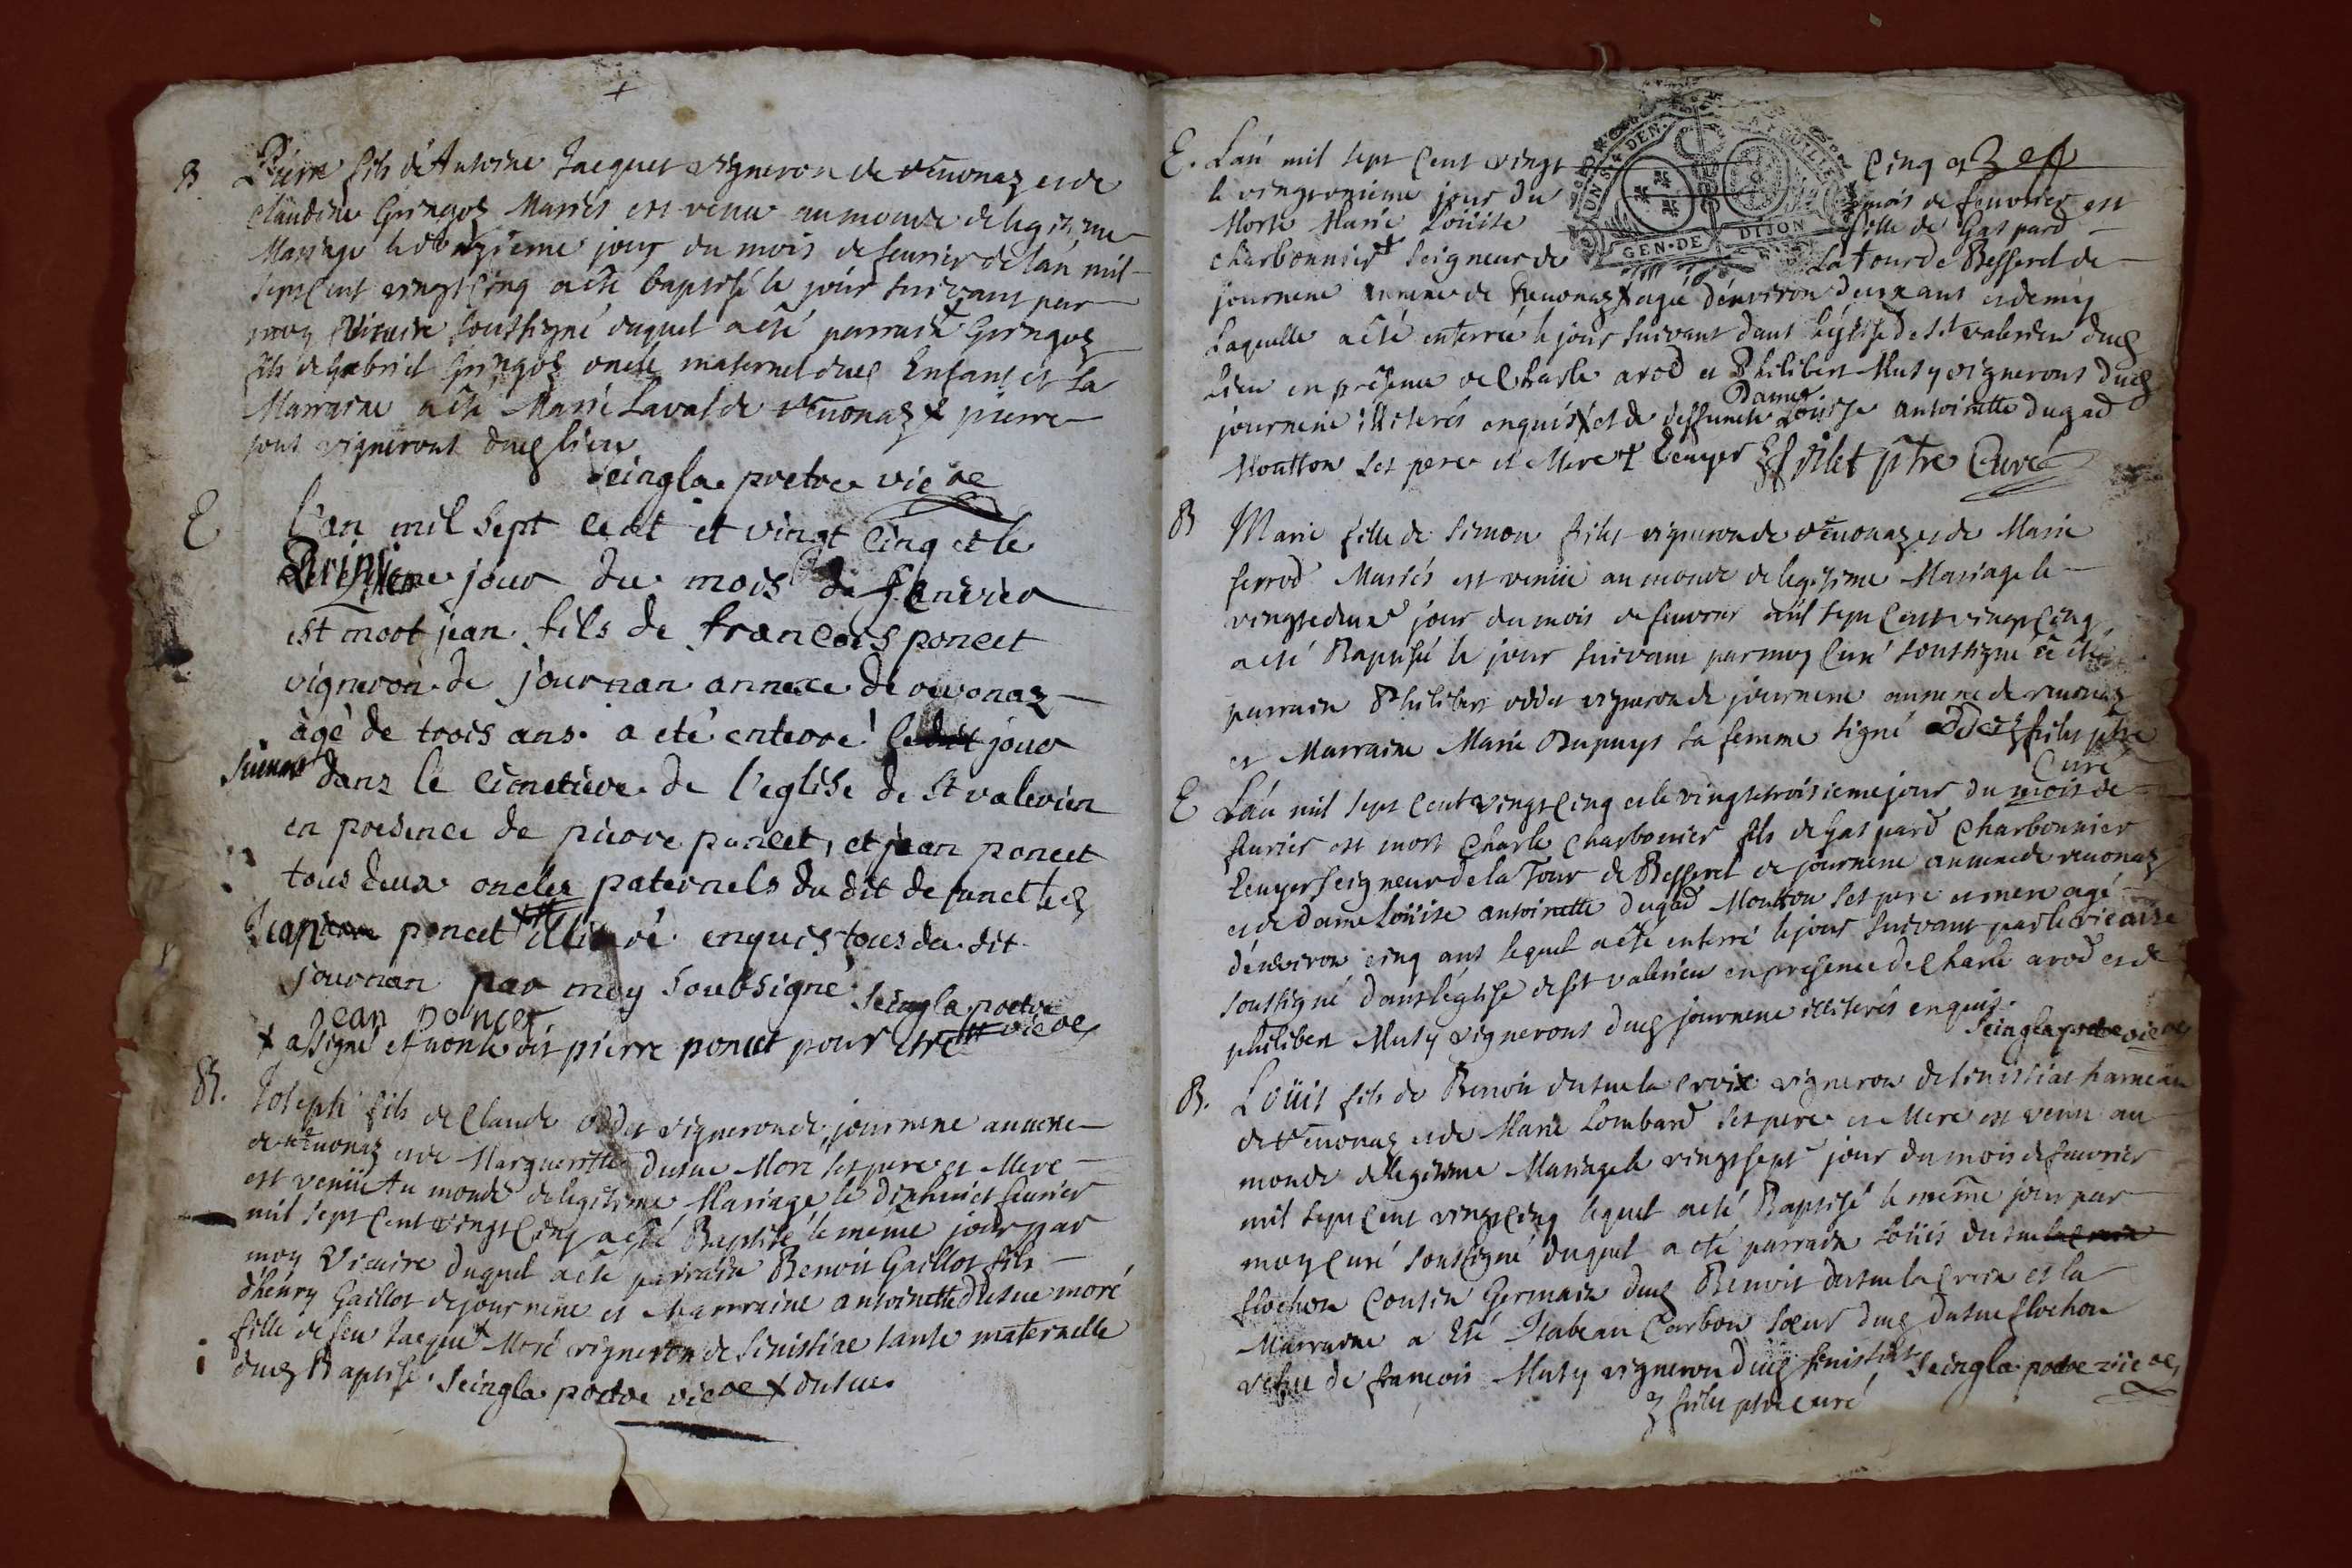 +
B Pierre fils d'Antoine Jacquet vigneron de revonaz et de
Claudine Gringoz Mariés est venu au monde de legitime
Mariage le jour du mois de feuvrier de lan mil
sept Cent vingt Cinq a été baptisé le jour suivant par
moy Vicaire soussigné duquel a été parrain Gringoz
fils de Gabriel Gringoz oncle maternel dud Enfant et la
Marraine a été Marie Laval de revonaz + pierre
tous vignerons dud lieu
seingla pretre vic re
E L'an mil sept cent et vingt Cinq et le
jour du mois de fevrier
est mort jean fils de francois poncet
vigneron de journan annexe de revonaz
àgé de trois ans a eté enterré le jour
suivant dans le cimetiere de l'eglise de St valerien
en presence de pierre poncet, et jean poncet
tous deux oncles paternels du dit defunct led
Jean poncet enquis tous du dit
journan par moy soubsigné
jean poncet seingla pretre
+ a signé et non led pierre poncet pour etre vic re
B. Joseph fils de Claude oddet vigneron de journene annexe
de revonaz et de Marguerittte dusue Moré ses pere et Mere
est venü Au monde de legitime Mariage le dixhuict feurier
mil sept Cent vingt Cinq a été Baptisé le meme jour par
moy Vicaire duquel a été parrain Benoit Gaillot fils
d'henry Gaillot de journene et Marraine antoinette dusue moré
fille de feu Jacque Moré vigneron de Senissiae tante maternelle
dud Baptisé. Seingla pretre vic re + dusue
E. Lan mil sept Cent vingt Cinq et
le vingtonieme jour du mois de feuvrier est
Morte Marie Loüise fille de Gaspard
charbonnier + seigneur de La tour de Besserel de
journene annexe de Revonaz + agée d'environ deux ans et demiy
Laquelle a été enterrée le jour suivant dans l'eglise de st valerien dud
Lieu en presence de Charle arod et Philibert Muty vignerons dud
journene illiterés enquis + et de deffuncte Dame Loüise antoinette dugad
Moutton ses pere et Mere + Ecuyer pitre Curé
GEN·DE DIJON
B Marie fille de Simon vigneron de revonaz et de Marie
ferrod Mariés est venüe au monde de legitime Mariage le
vingtedeux jour du mois de feuvrier mil sept Cent vingt Cinq
a été Baptisée le jour suivant par moy Curé soussigné a été
parrain Philibert oddet vigneron de journene annexe de revonaz
et Marraine Marie Dupuys sa femme signé oddet
Curé
E Lan mil sept Cent vingt Cinq et le vingtetroisieme jour du mois de
feurier est mort Charle Charbonnier fils de Gaspard Charbonnier
Ecuyer seigneur de la Tour de Besserel de journene annexe de revonaz
et de Dame Loüise antoinette dugad Moutton ses pere et mere agé
d'environ cinq ans lequel a été enterré le jour suivant par le vicaire
soussigné dans l'eglise de st valerien en presence de Charle arod et de
philibert Muty vignerons dud journene illiterés enquis.
Seingla pretre vic re
B. Loüis fils de Benoit dusue la Croix vigneron de Senissiat hameau
de revonaz et de Marie Lombard ses pere et Mere est venu au
monde de legitime Mariage le vingtsept jour du mois de feuvrier
mil sept Cent vingt Cinq lequel a été Baptisé le même jour par
moy Curé soussigné duquel a été parrain Loüis dusue
flochon Cousin Germain dud Benoit dusue la Croix et la
Marraine a Eté Isabeau Carbon sœur dud dusue flochon
vefue de francois Muty vigneron dud senissiat Seingla pretre vic re
curé